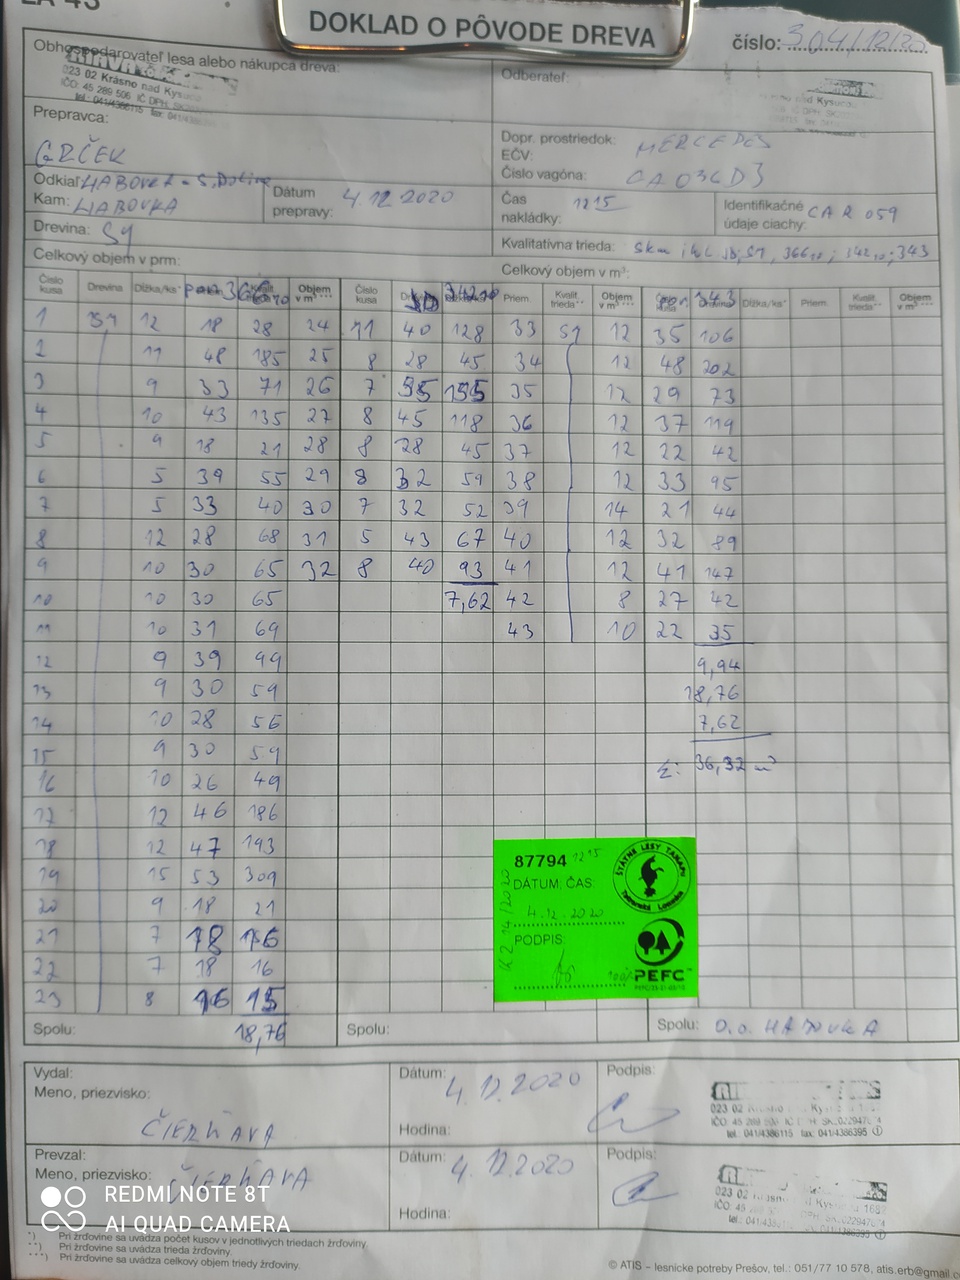 DOKLAD O PÔVODE DREVA
číslo: 304/12/20
Obhospodarovateľ lesa alebo nákupca dreva:
023 02 Krásno nad Kysucou
IČO: 45 289 506 IČ DPH:
tel.: 041/4386115 fax: 041/
Odberateľ:
Prepravca:
GRČEK
Dopr. prostriedok: MERCEDES
EČV:
Číslo vagóna: CA036DJ
Odkiaľ: HABOVKA - S. Dolina
Kam: HABOVKA
Dátum
prepravy: 4.12.2020
Čas
nakládky: 12 15
Identifikačné
údaje ciachy: CAR 059
Drevina: SM
Kvalitatívna trieda:
Celkový objem v prm:
Celkový objem v m³:
Číslo kusa Drevina Dĺžka/ks* por. 366 Kvalit. trieda** Objem v m³*** Číslo kusa 342 Priem. Kvalit. trieda** Objem v m³*** por. 343 Dĺžka/ks* Priem. Kvalit. trieda** Objem v m³***
1 SM 12 18 28 24 11 40 128 33 SM 12 35 106
2 11 48 185 25 8 28 45 34 12 48 202
3 9 33 71 26 7 55 155 35 12 29 73
4 10 43 135 27 8 45 118 36 12 37 119
5 9 18 21 28 8 28 45 37 12 22 42
6 5 39 55 29 8 32 59 38 12 33 95
7 5 33 40 30 7 32 52 39 14 21 44
8 12 28 68 31 5 43 67 40 12 32 89
9 10 30 65 32 8 40 93 41 12 41 147
10 10 30 65 7,62 42 8 27 42
11 10 31 69 43 10 22 35
12 9 39 99 9,94
13 9 30 59 18,76
14 10 28 56 7,62
15 9 30 59 Σ: 36,32 m³
16 10 26 49
17 12 46 186
18 12 47 193
19 15 53 309
20 9 18 21
21 7 18 16
22 7 18 16
23 8 16 15
87794 12 15
DÁTUM, ČAS:
4.12.2020
PODPIS:
ŠTÁTNE LESY TANAPU
Tatranská Lomnica
PEFC
Spolu: 18,76
Spolu:
Spolu: O.O. HABOVKA
Vydal:
Meno, priezvisko:
ČIERŇAVA
Dátum: 4.12.2020
Hodina:
Podpis:
IČO: 45 289
tel.: 041/4386115 fax: 041/4386395
Prevzal:
Meno, priezvisko:
ČIERŇAVA
Dátum: 4.12.2020
Hodina:
Podpis:
REDMI NOTE 8T
AI QUAD CAMERA
*) Pri žrďovine sa uvádza počet kusov v jednotlivých triedach žrďoviny.
**) Pri žrďovine sa uvádza trieda žrďoviny.
***) Pri žrďovine sa uvádza celkový objem triedy žrďoviny.
© ATIS – lesnícke potreby Prešov, tel.: 051/77 10 578, atis.erb@gmail